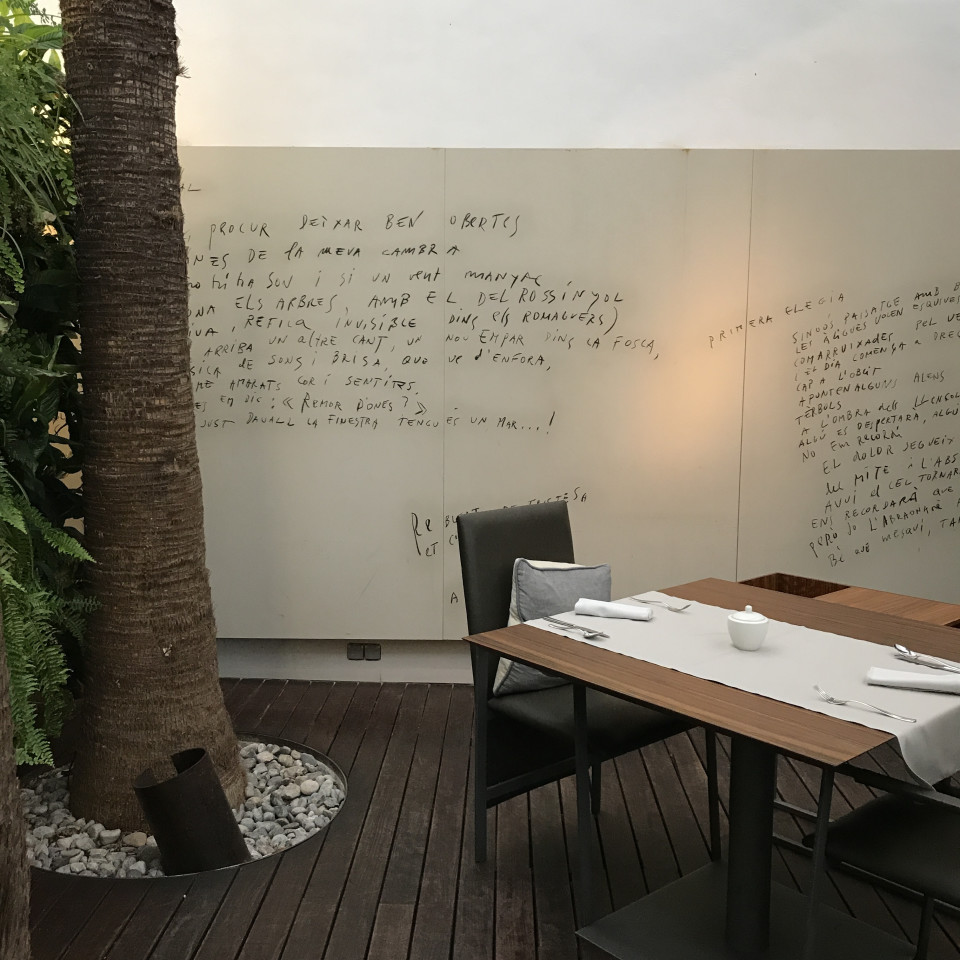 AL
PROCUR DEIXAR BEN OBERTES
NES DE LA MEVA CAMBRA
SON I SI UN VENT MANYAC
ONA ELS ARBRES, AMB EL DEL ROSSINYOL
IVA, RETICA INVISIBLE DINS ELS ROMAGUERS)
ARRIBA UN ALTRE CANT, UN NOU EMPAR DINS LA FOSCA,
SICA DE SONS I BRISA, QUE VE D'ENFORA,
ME AMARATS COR I SENTITS.
ES EM DIC: «REMOR D'ONES?»
JUST DAVALL LA FINESTRA TENGUÉS UN MAR...!
TRISTESA
A
PRIMERA ELEGIA
SINOÓS PAISATGE AMB
LES AIGÜES VOLEN ESQUIVES
COMARRUIXADES PEL VE
I EL DIA COMENÇA A DREÇ
CAP A L'OBLIT
APUNTEN ALGUNS ALENS
TÈRBOLS
A L'OMBRA DELS LLENÇOL
ALGÚ ES DESPERTARÀ, ALGÚ
NO EM RECORDA
EL DOLOR SEGUEIX
DEL MITE I L'ABS
AVUI EL CEL TORNAR
ENS RECORDARÀ QUE
PERÒ JO L'ABRAONARÉ
BÉ QUE MESQUÍ, TA